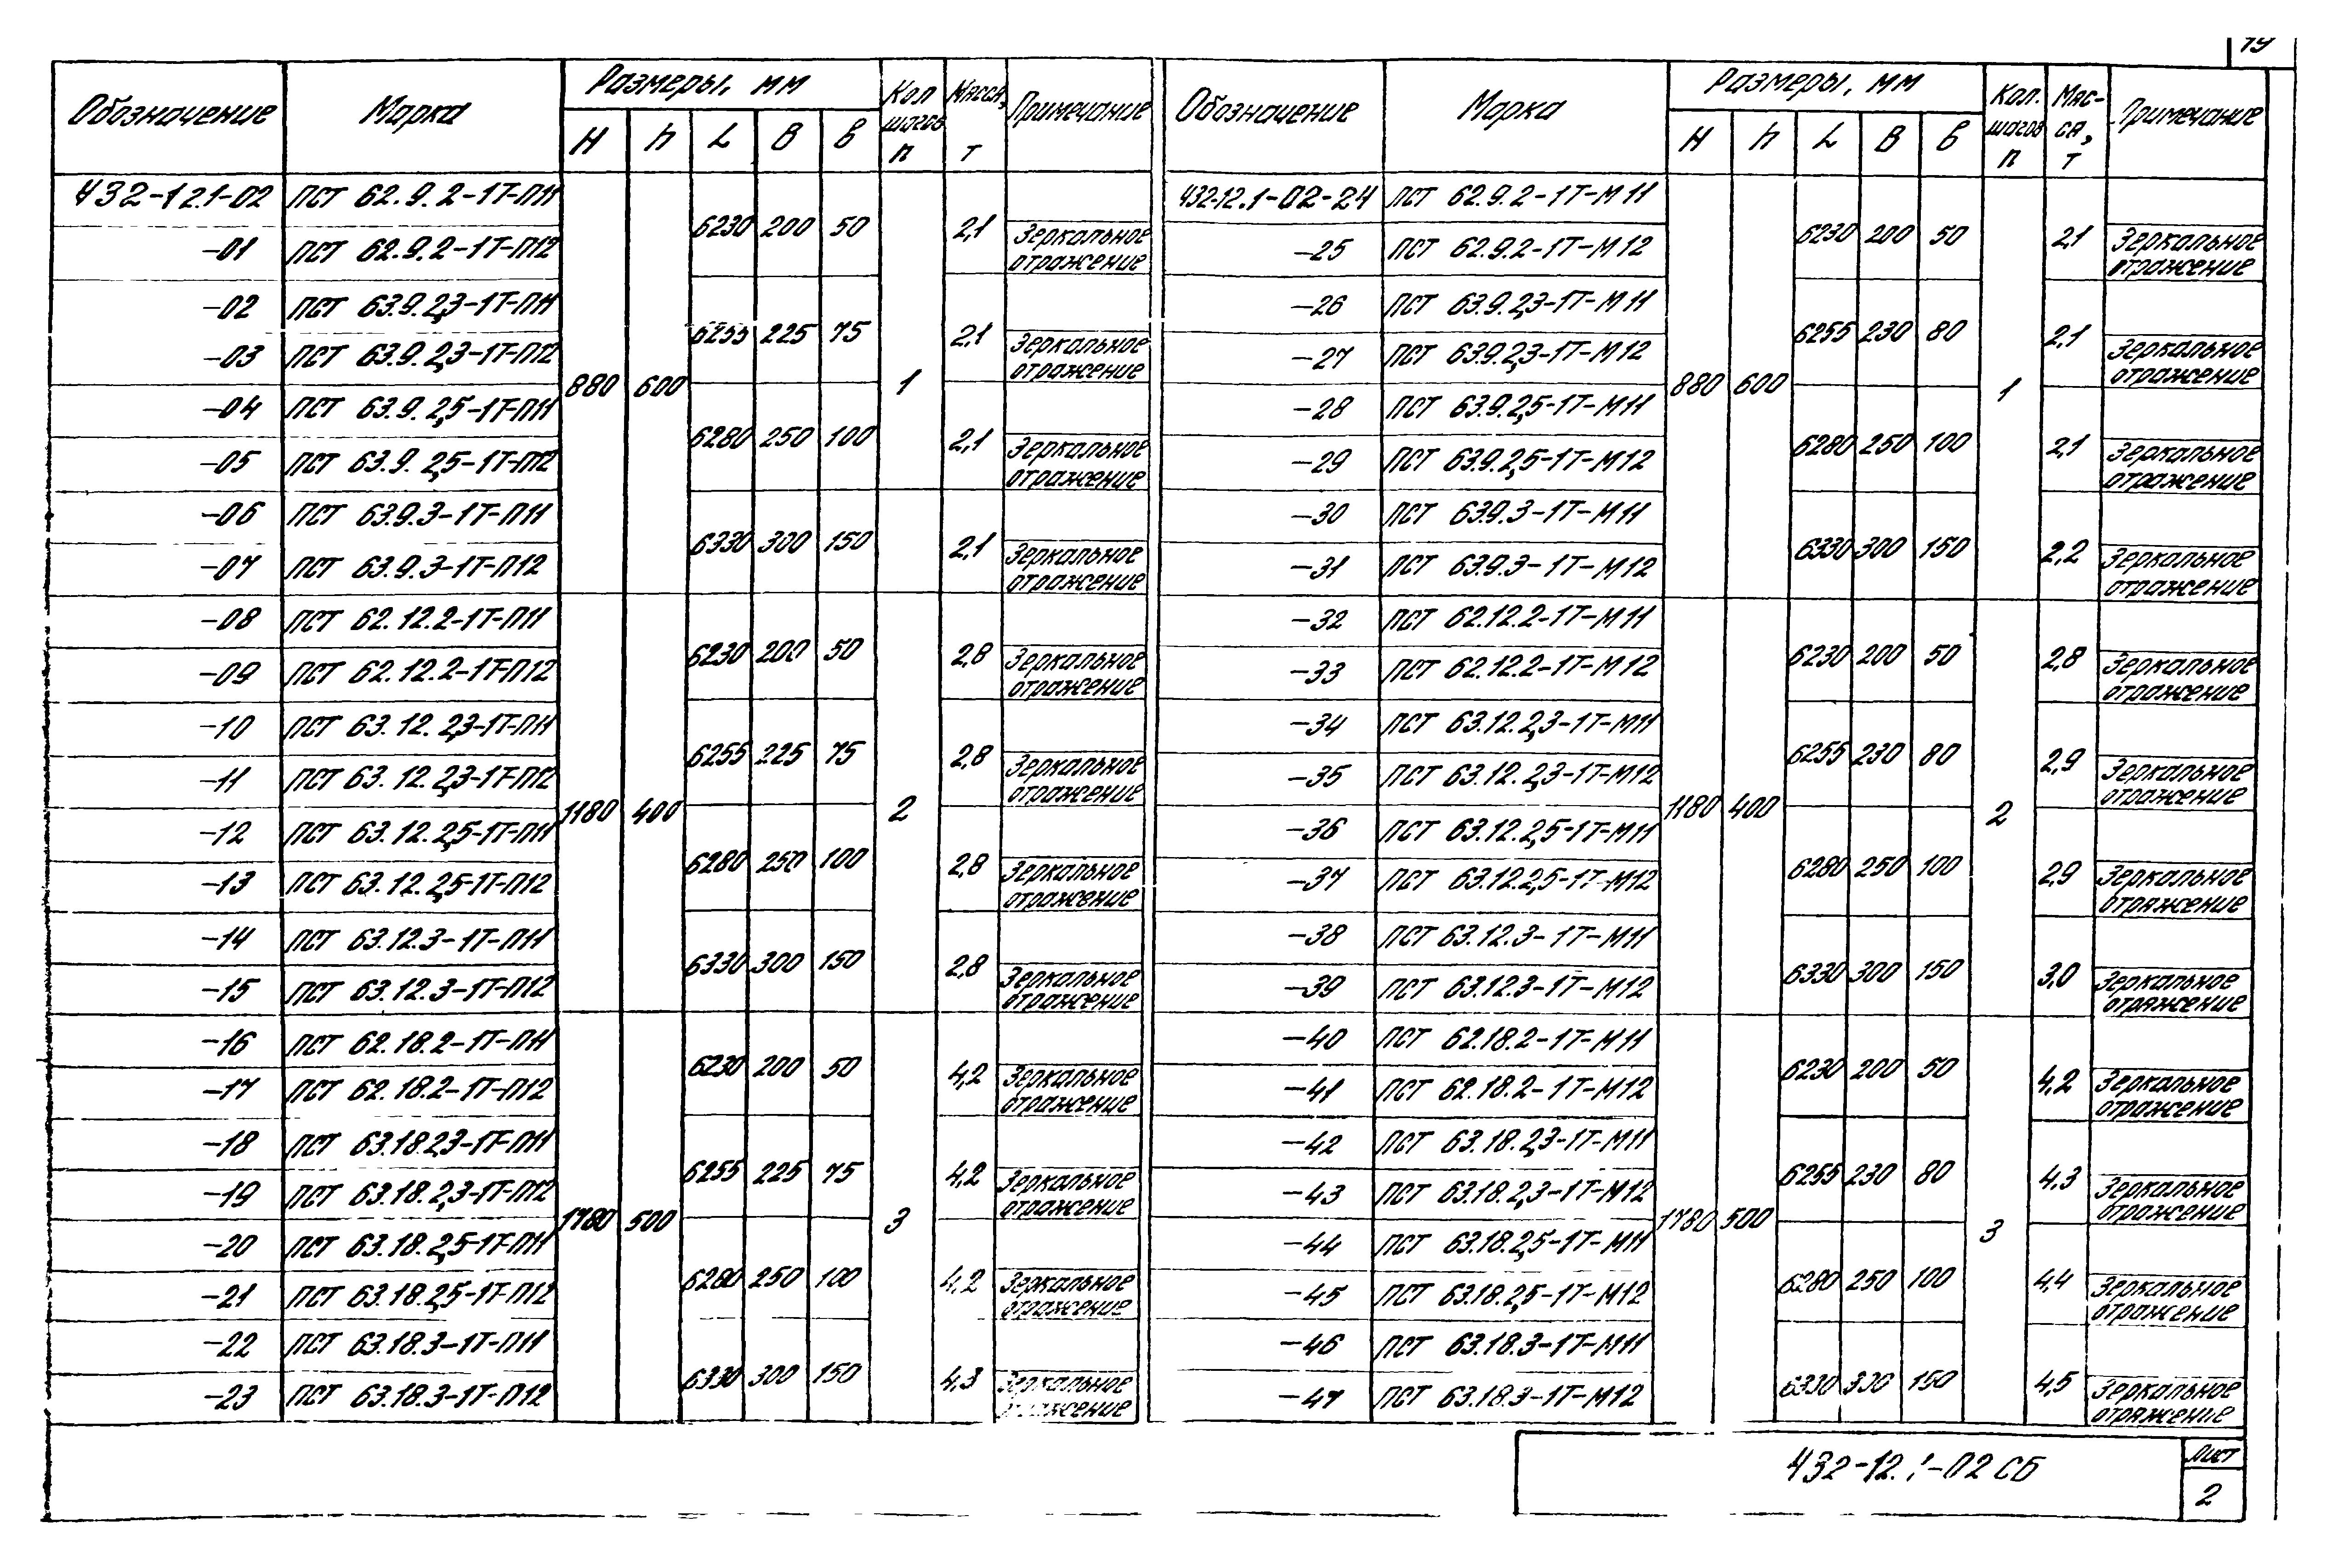 19
Обозначение Марка Размеры, мм Кол шагов п Масса, т Примечание Обозначение Марка Размеры, мм Кол. шагов п Мас-са, т Примечание
H h L B b H h L B b
432-12.1-02 ПСТ 62.9.2-1Т-П11 432-12.1-02-24 ПСТ 62.9.2-1Т-М11
6230 200 50 2,1 6230 200 50 2,1
-01 ПСТ 62.9.2-1Т-П12 Зеркальное отражение -25 ПСТ 62.9.2-1Т-М12 Зеркальное отражение
-02 ПСТ 63.9.2,3-1Т-П11 -26 ПСТ 63.9.2,3-1Т-М11
6255 225 75 2,1 6255 230 80 2,1
-03 ПСТ 63.9.2,3-1Т-П12 Зеркальное отражение -27 ПСТ 63.9.2,3-1Т-М12 Зеркальное отражение
880 600 1 880 600 1
-04 ПСТ 63.9.2,5-1Т-П11 -28 ПСТ 63.9.2,5-1Т-М11
6280 250 100 2,1 6280 250 100 2,1
-05 ПСТ 63.9.2,5-1Т-П12 Зеркальное отражение -29 ПСТ 63.9.2,5-1Т-М12 Зеркальное отражение
-06 ПСТ 63.9.3-1Т-П11 -30 ПСТ 63.9.3-1Т-М11
6330 300 150 2,1 6330 300 150 2,2
-07 ПСТ 63.9.3-1Т-П12 Зеркальное отражение -31 ПСТ 63.9.3-1Т-М12 Зеркальное отражение
-08 ПСТ 62.12.2-1Т-П11 -32 ПСТ 62.12.2-1Т-М11
6230 200 50 2,8 6230 200 50 2,8
-09 ПСТ 62.12.2-1Т-П12 Зеркальное отражение -33 ПСТ 62.12.2-1Т-М12 Зеркальное отражение
-10 ПСТ 63.12.2,3-1Т-П11 -34 ПСТ 63.12.2,3-1Т-М11
6255 225 75 2,8 6255 230 80 2,9
-11 ПСТ 63.12.2,3-1Т-П12 Зеркальное отражение -35 ПСТ 63.12.2,3-1Т-М12 Зеркальное отражение
1180 400 2 1180 400 2
-12 ПСТ 63.12.2,5-1Т-П11 -36 ПСТ 63.12.2,5-1Т-М11
6280 250 100 2,8 6280 250 100 2,9
-13 ПСТ 63.12.2,5-1Т-П12 Зеркальное отражение -37 ПСТ 63.12.2,5-1Т-М12 Зеркальное отражение
-14 ПСТ 63.12.3-1Т-П11 -38 ПСТ 63.12.3-1Т-М11
6330 300 150 2,8 6330 300 150 3,0
-15 ПСТ 63.12.3-1Т-П12 Зеркальное отражение -39 ПСТ 63.12.3-1Т-М12 Зеркальное отражение
-16 ПСТ 62.18.2-1Т-П11 -40 ПСТ 62.18.2-1Т-М11
6230 200 50 4,2 6230 200 50 4,2
-17 ПСТ 62.18.2-1Т-П12 Зеркальное отражение -41 ПСТ 62.18.2-1Т-М12 Зеркальное отражение
-18 ПСТ 63.18.2,3-1Т-П11 -42 ПСТ 63.18.2,3-1Т-М11
6255 225 75 4,2 6255 230 80 4,3
-19 ПСТ 63.18.2,3-1Т-П12 Зеркальное отражение -43 ПСТ 63.18.2,3-1Т-М12 Зеркальное отражение
1780 500 3 1780 500 3
-20 ПСТ 63.18.2,5-1Т-П11 -44 ПСТ 63.18.2,5-1Т-М11
6280 250 100 4,2 6280 250 100 4,4
-21 ПСТ 63.18.2,5-1Т-П12 Зеркальное отражение -45 ПСТ 63.18.2,5-1Т-М12 Зеркальное отражение
-22 ПСТ 63.18.3-1Т-П11 -46 ПСТ 63.18.3-1Т-М11
6330 300 150 4,3 6330 300 150 4,5
-23 ПСТ 63.18.3-1Т-П12 Зеркальное отражение -47 ПСТ 63.18.3-1Т-М12 Зеркальное отражение
432-12.1-02 СБ Лист
2